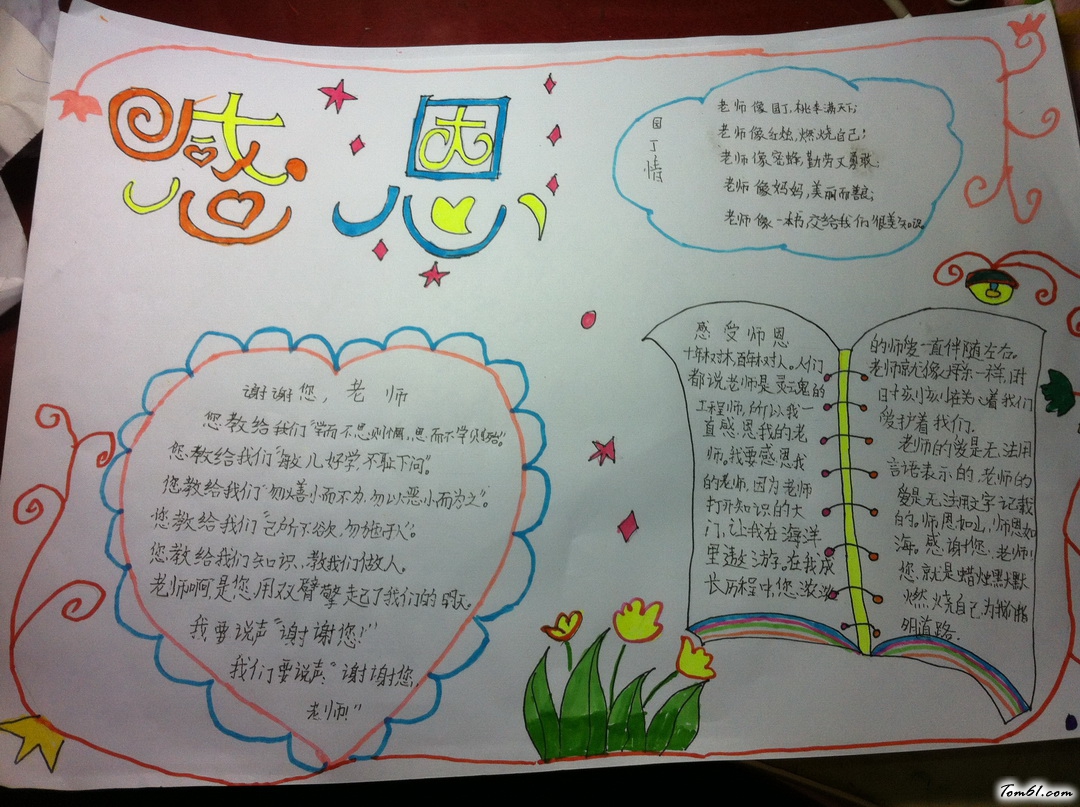 感恩
园丁情
老师像园丁,桃李满天下;
老师像红烛,燃烧自己;
老师像蜜蜂,勤劳又勇敢;
老师像妈妈,美丽而善良;
老师像一本书,交给我们很多知识。
谢谢您,老师
您教给我们"学而不思则惘,思而不学则殆"。
您教给我们"敏儿好学,不耻下问"。
您教给我们"勿以善小而不为,勿以恶小而为之"。
您教给我们"己所不欲,勿施于人"。
您教给我们知识、教我们做人。
老师啊,是您,用双臂擎起了我们的明天。
我要说声"谢谢您!"
我们要说声:"谢谢您,
老师!"
感受师恩
十年树木,百年树人。人们
都说老师是灵魂的
工程师,所以我一
直感恩我的老
师。我要感恩我
的老师,因为老师
打开知识的大
门,让我在海洋
里遨游。在我成
长历程中,您滚滚
的师爱一直伴随左右。
老师就像
我们
爱护着我们。
老师的爱是无法用
言语表示的,老师的
爱是无法用文字记载
的。师恩如山,师恩如
海。感谢您,老师!
您就是蜡烛默默
燃烧自己,为我们指
明道路.
Tom61.com